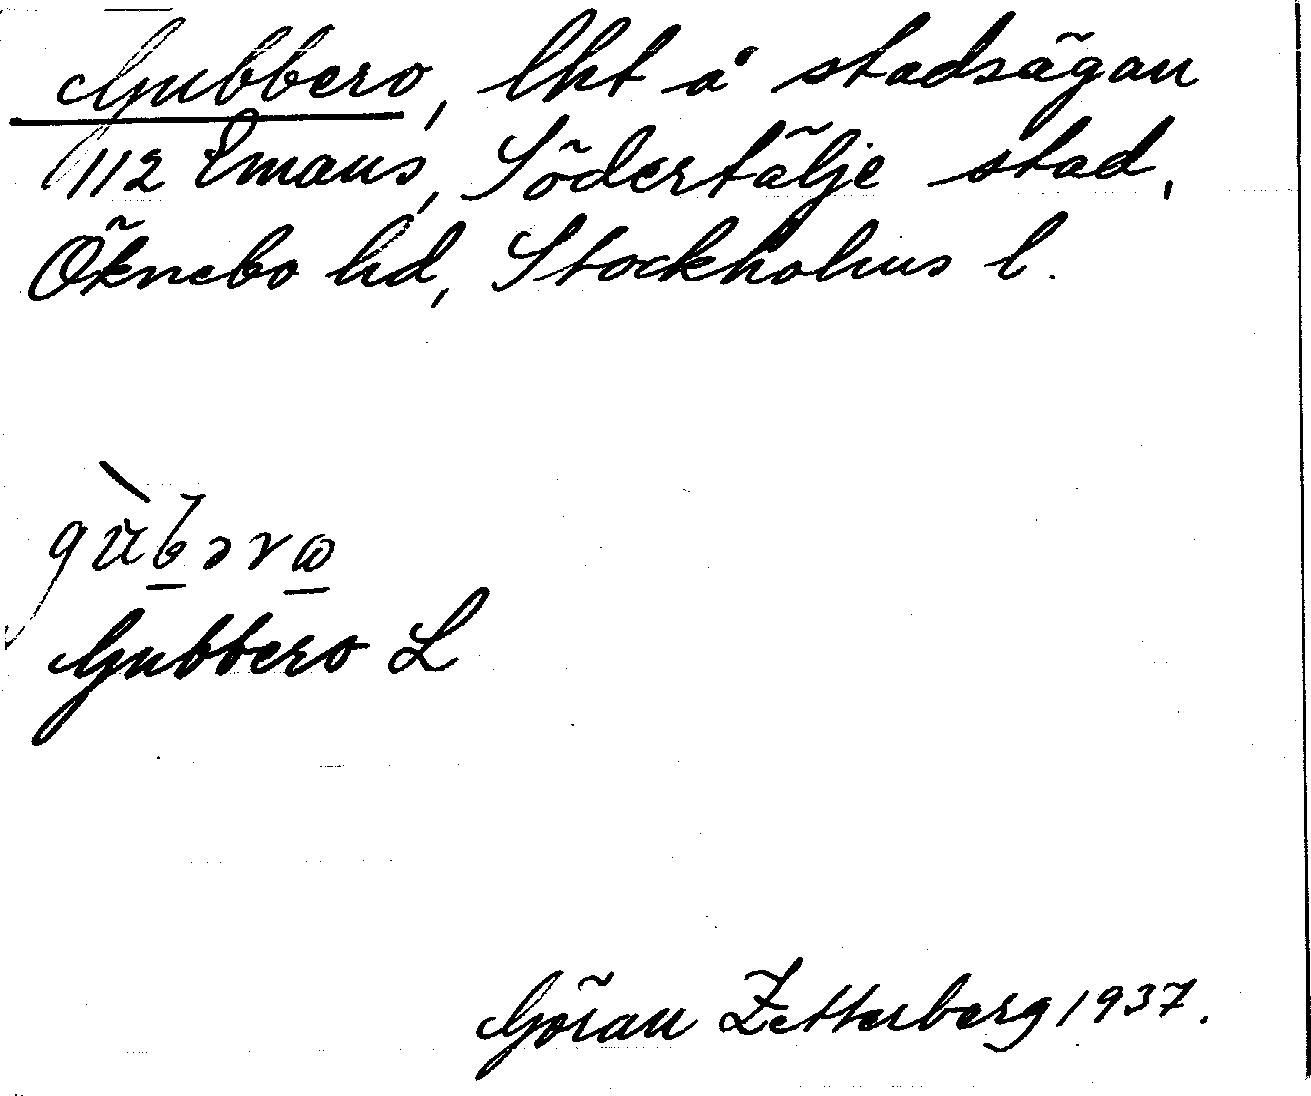 Gubbero, lht å stadsägan
112 Emaus, Södertälje stad,
Öknebo hd, Stockholms l.
gùbərω
Gubbero L
Göran Zetterberg 1937.